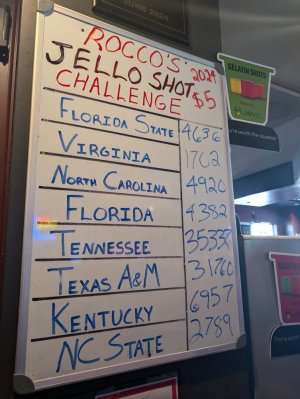 JUNE 2024
ROCCO'S 2024
JELLO SHOT
CHALLENGE $5
FLORIDA STATE 4636
VIRGINIA
NORTH CAROLINA 4920
FLORIDA 4382
TENNESSEE
TEXAS A&M 31760
KENTUCKY 6957
NC STATE 2789
GELATIN SHOTS
JEVO